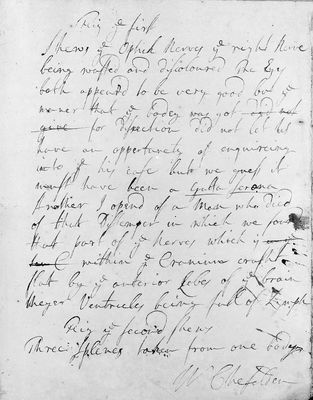 Fig ye first
Shews ye Optick Nerves ye right Nerve
being wasted and discoloured The Eyes
both appeard to be very good but ye
maner that ye bodey was got and not
give for disection did not let us
have an oppertunety of enquireing
into ye his case but we guess it
must have been a Gutta serena
Another I opend of a Man who died
of that Distemper in which we found
that part of ye Nerves which
within ye Cranium crusht
flat by ye anterior Lobes of ye brain
theyer Ventricles being full of Lymph
Fig ye second shews
Three spleens taken from one bodey
Wm Cheselden